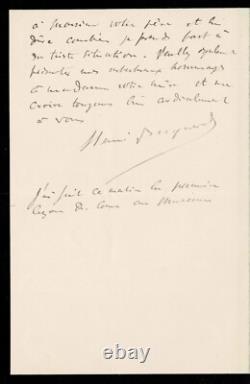 à monsieur votre père et lui
dire combien je prends part à
sa triste situation. Veuillez également
présenter mes respectueux hommages
à madame votre mère et me
croire toujours bien cordialement
à vous
Henri Becquerel
J'ai fait ce matin la première
leçon du cours au Muséum